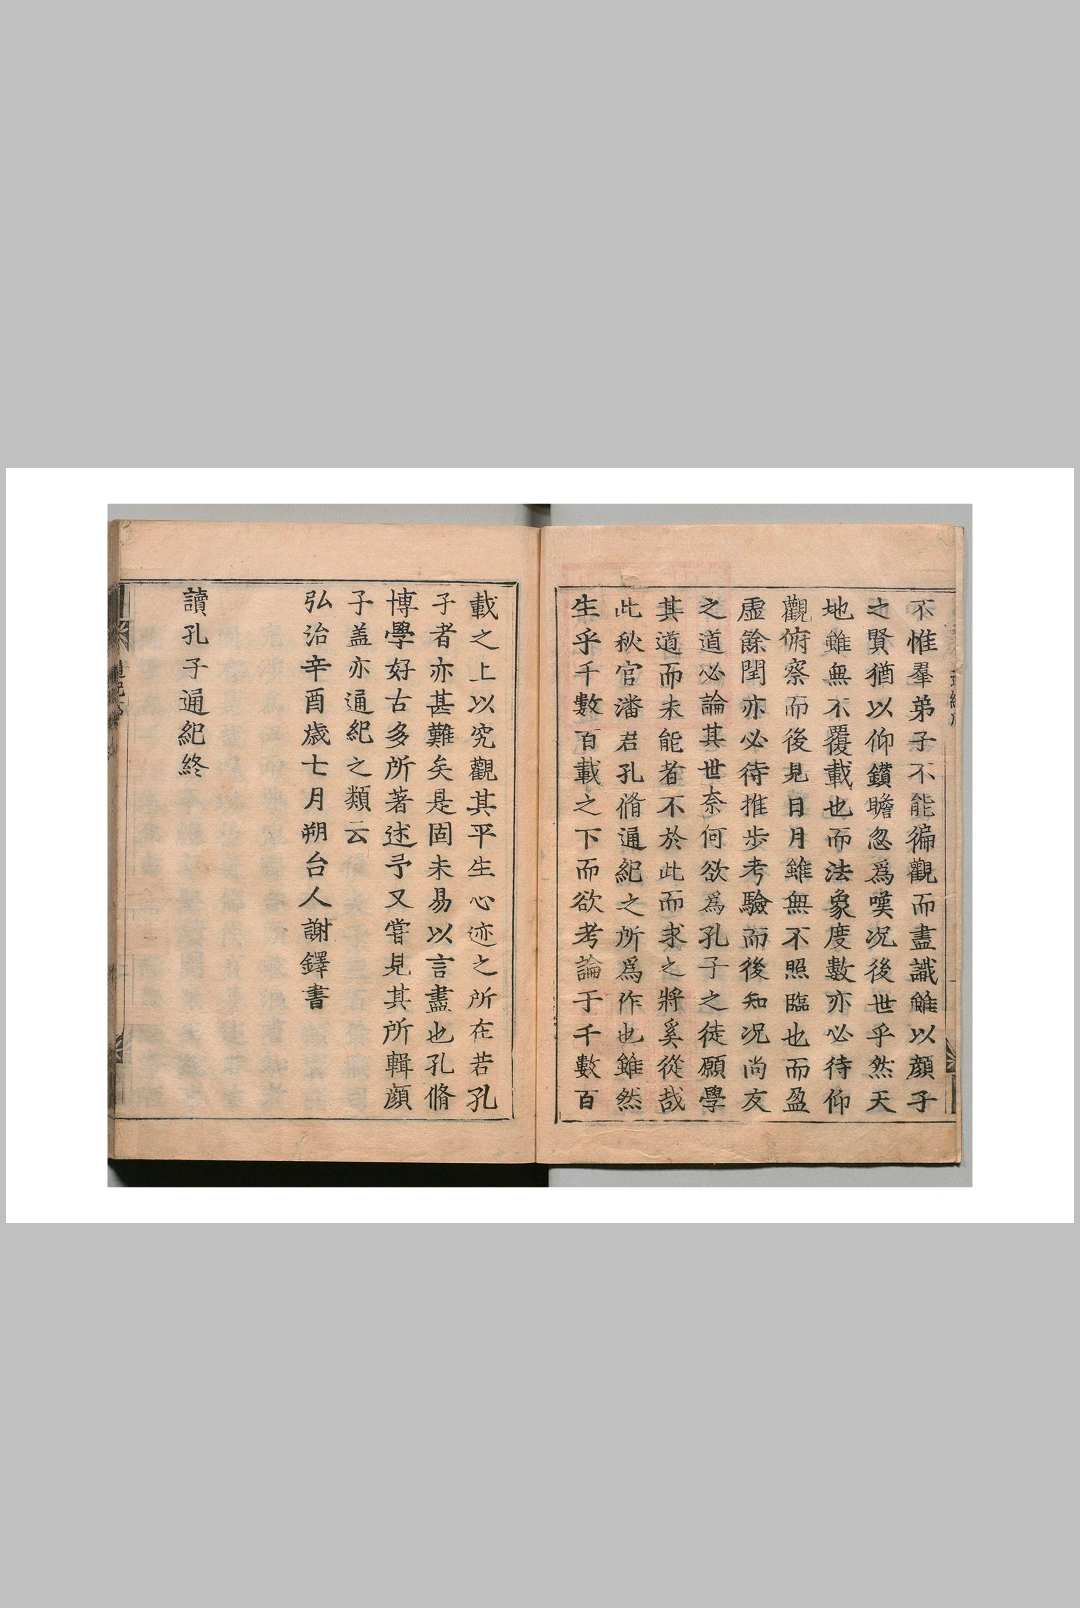 不惟羣弟子不能徧觀而盡識雖以顔子
之賢猶以仰鑚瞻忽爲嘆况後世乎然天
地雖無不覆載也而法象度數亦必待仰
觀俯察而後見日月雖無不照臨也而盈
虛餘閏亦必待推步考驗而後知况尚友
之道必論其世奈何欲爲孔子之徒願學
其道而未能者不於此而求之將奚從哉
此秋官潘君孔脩通紀之所爲作也雖然
生乎千數百載之下而欲考論于千數百
載之上以究觀其平生心迹之所在若孔
子者亦甚難矣是固未易以言盡也孔脩
博學好古多所著述予又甞見其所輯顔
子盖亦通紀之類云
弘治辛酉歳七月朔台人謝鐸書
讀孔子通紀終